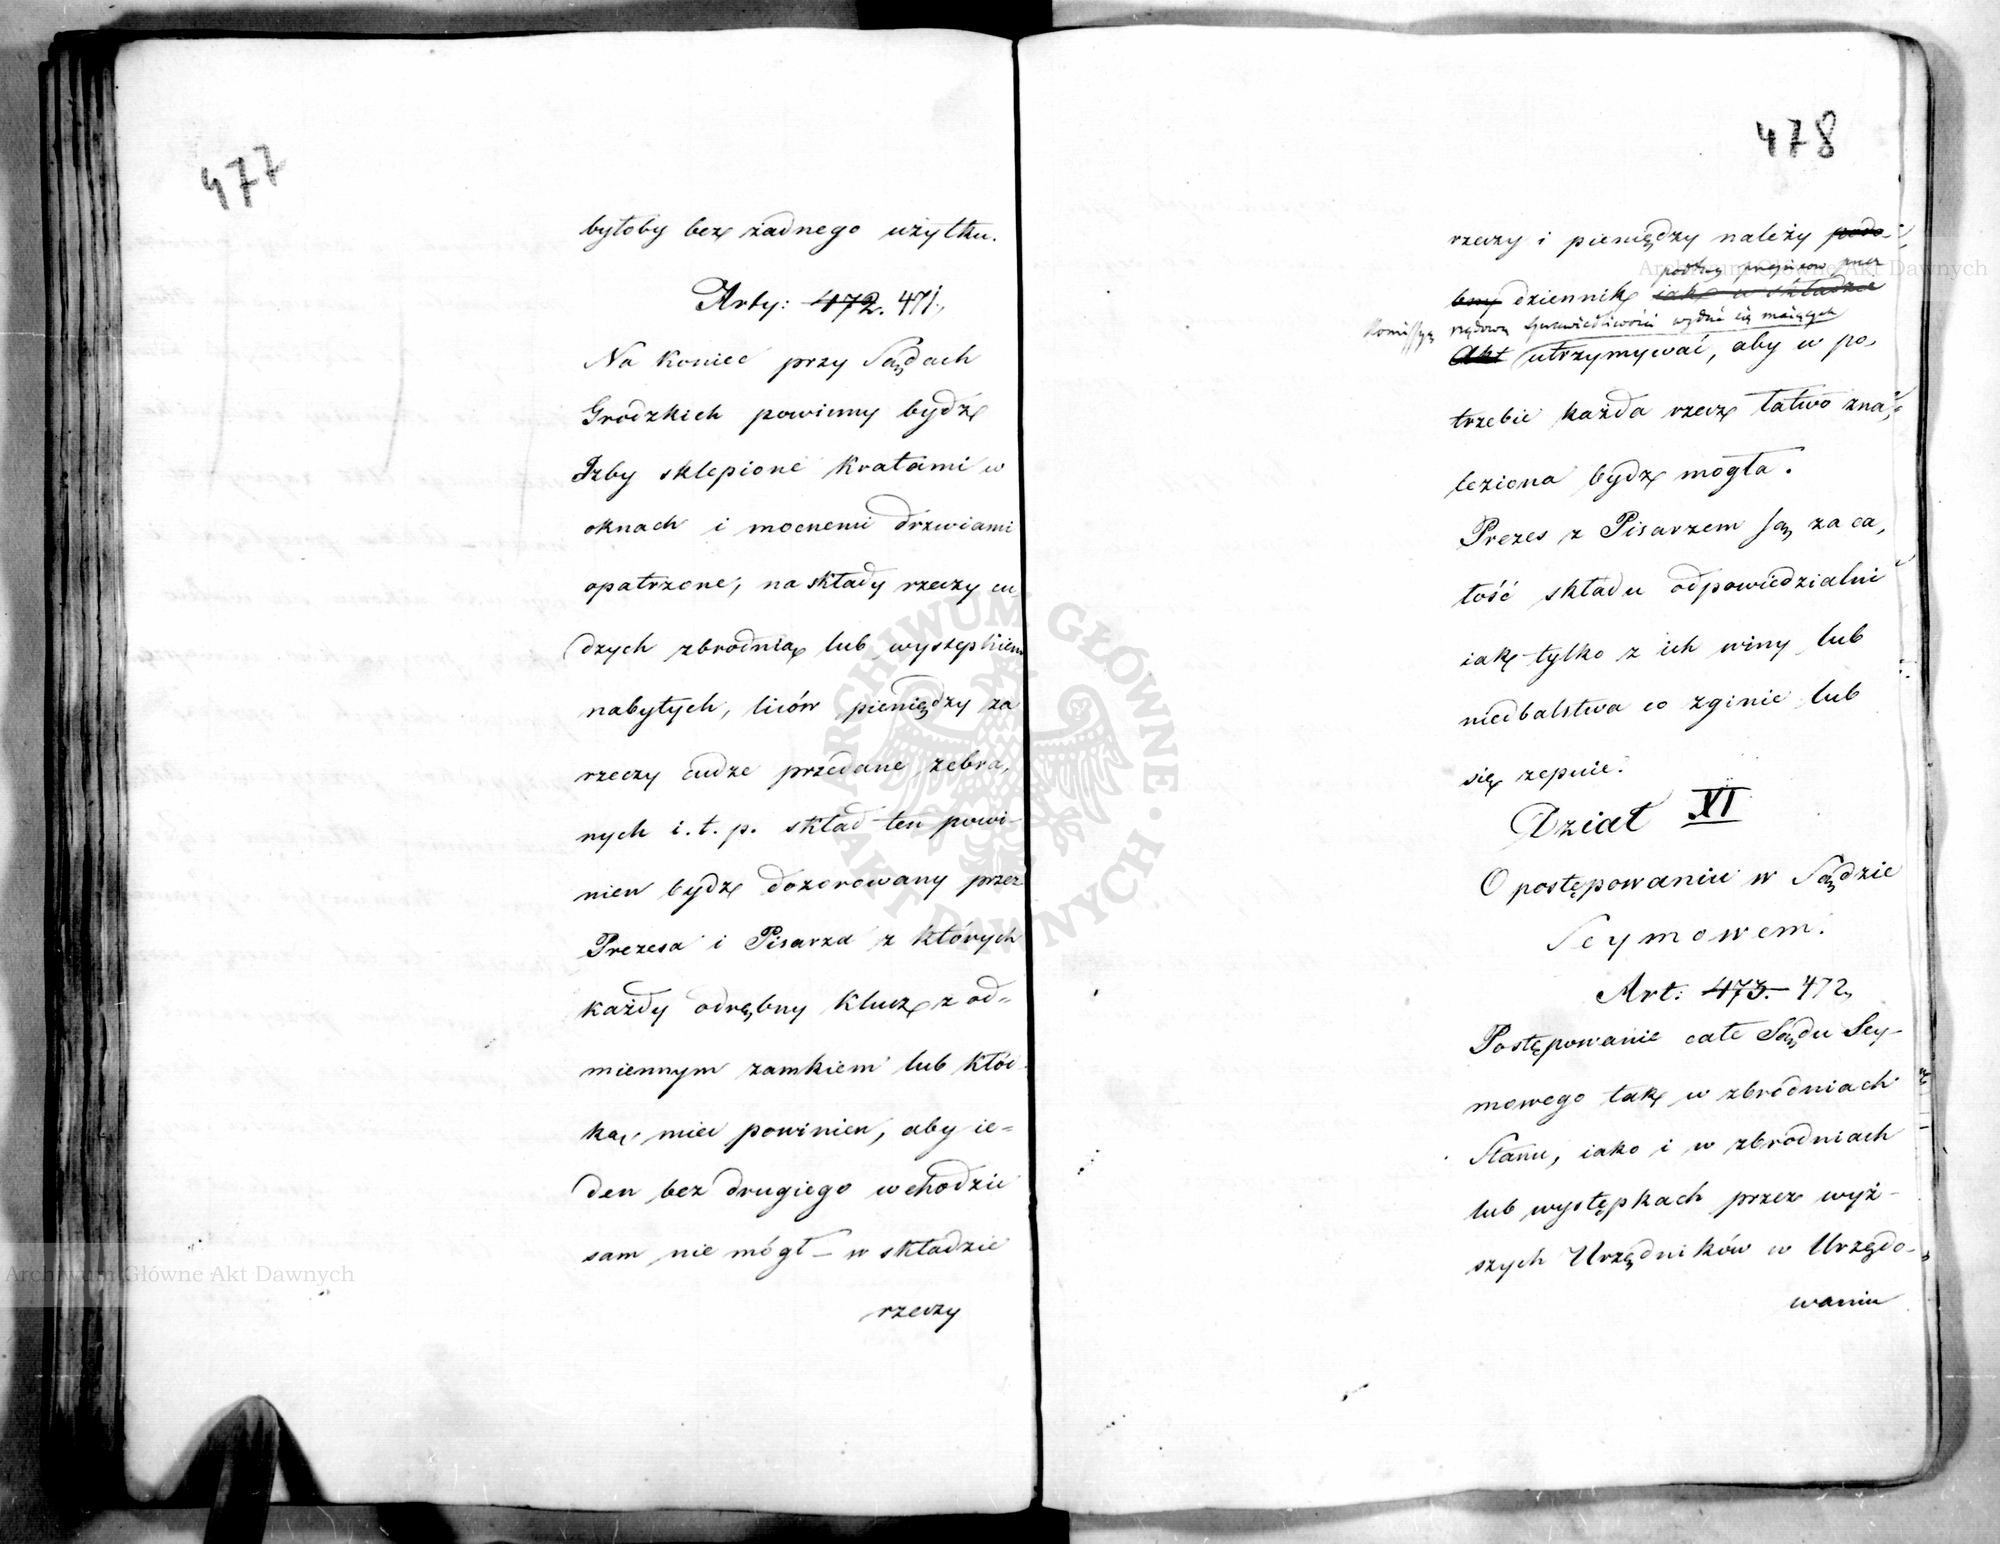 477
byłoby bez żadnego użytku.
Arty: 472. 471.
Na koniec przy Sądach
Grodzkich powinny bydź
Izby sklepione kratami w
oknach i mocnemi drzwiami
opatrzone, na składy rzeczy cu,
dzych zbrodnią lub występkiem
nabytych, liców pieniędzy za
rzeczy cudze przedane, zebra,
nych i. t. p. skład ten powi-
nien bydź dozorowany przez
Prezesa i Pisarza z których
każdy odrębny klucz z od=
miennym zamkiem lub kłód
ką, mieć powinien, aby ie=
den bez drugiego wchodzić
sam nie mógł – w składzie
rzeczy
478
rzeczy i pieniędzy należy podo-
podług przepisow przez
bny dziennik iak w składzie
Kommissyą rządową Sprawiedliwości wydać się maiących
Akt utrzymywać, aby w po,
trzebie każda rzecz łatwo zna,
leziona bydź mogła.
Prezes z Pisarzem są za ca,
łość składu odpowiedzialni
iak tylko z ich winy lub
niedbalstwa co zginie lub
się zepsuie.
Dział XI
O postępowaniu w Sądzie
Seymowem.
Art: 473. – 472,
Postępowanie całe Sądu Sey-
mowego tak w zbrodniach
Stanu, iako i w zbrodniach
lub występkach przez wyż-
szych Urzędników w Urzędo-
waniu
Archiwum Główne Akt Dawnych
Archiwum Główne Akt Dawnych
ARCHIWUM GŁÓWNE · AKT DAWNYCH ·